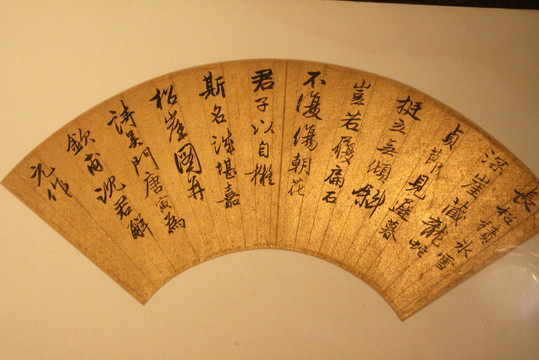 長松積氷雪
深崖藏龍蛇
貞節見歲暮
挺立無傾斜
豈若扁石
不復傷朝花
君子以自擬
斯名誠堪嘉
松崖圖并
詩吳門唐寅為
欽甫沈君解
元作